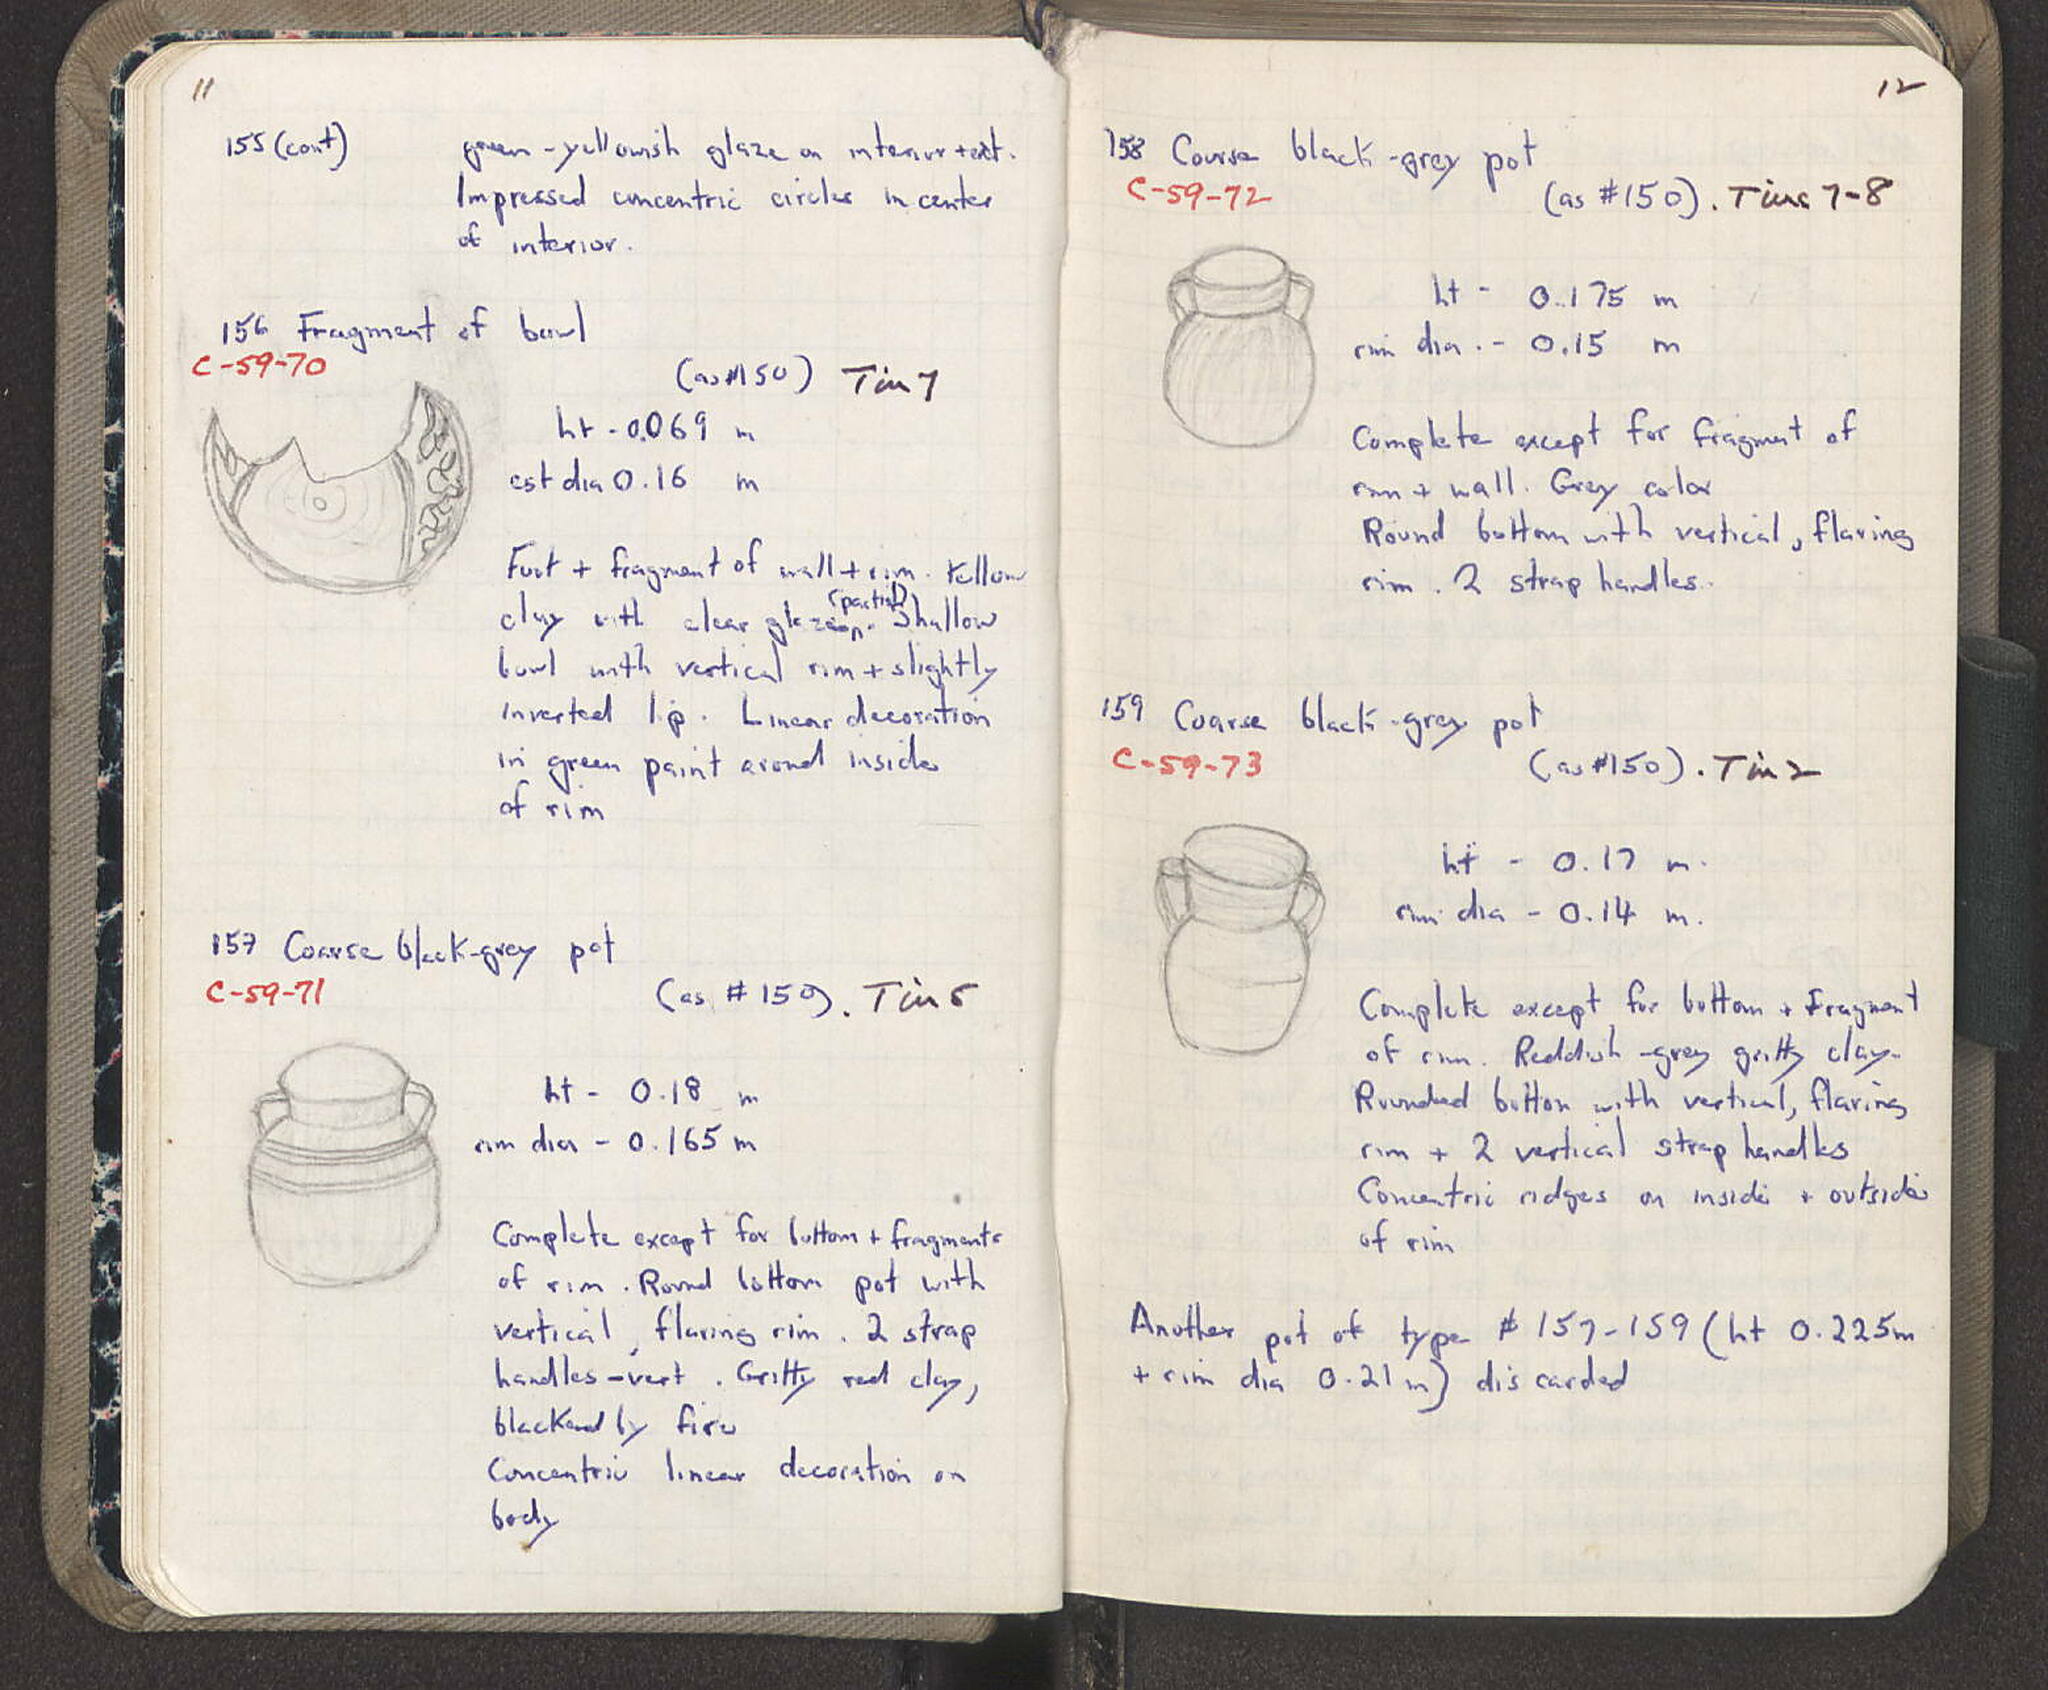 11
155 (cont) green-yellowish glaze on interior + ext.
Impressed concentric circles in center
of interior.
156 Fragment of bowl
C-59-70
(as #150) Tin 7
ht - 0.069 m
est dia 0.16 m
Foot + fragment of wall + rim. Yellow
(partial)
clay with clear glaze. Shallow
bowl with vertical rim + slightly
inverted lip. Linear decoration
in green paint around inside
of rim
157 Coarse black-grey pot
C-59-71
(as #150). Tin 5
ht - 0.18 m
rim dia - 0.165 m
Complete except for bottom + fragments
of rim. Round bottom pot with
vertical, flaring rim. 2 strap
handles-vert. Gritty red clay,
blackened by fire
Concentric linear decoration on
body
12
158 Coarse black-grey pot
C-59-72
(as #150). Tins 7-8
ht - 0.175 m
rim dia. - 0.15 m
Complete except for fragment of
rim + wall. Grey color
Round bottom with vertical, flaring
rim. 2 strap handles.
159 Coarse black-grey pot
C-59-73
(as #150). Tin 2
ht - 0.17 m.
rim dia - 0.14 m.
Complete except for bottom + fragment
of rim. Reddish-grey gritty clay.
Rounded bottom with vertical, flaring
rim + 2 vertical strap handles
Concentric ridges on inside + outside
of rim
Another pot of type # 157-159 (ht 0.225m
+ rim dia 0.21 m) discarded